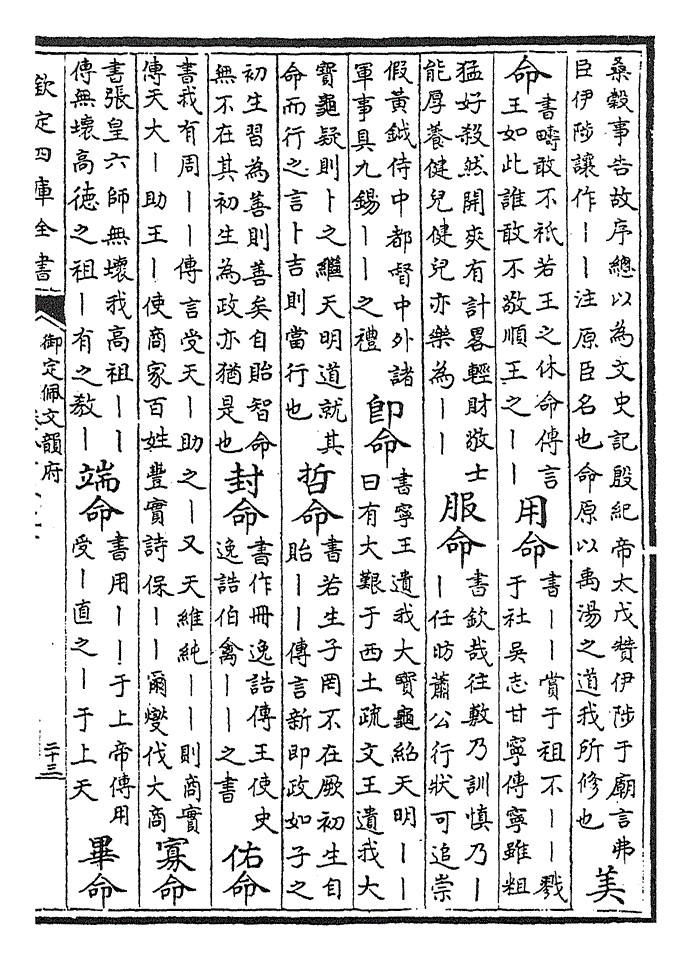 桑榖事告故序總以為文史記殷紀帝太戊贊伊陟于廟言弗
臣伊陟讓作丨丨注原臣名也命原以禹湯之道我所修也
美
命
書疇敢不祗若王之休命傳言
王如此誰敢不敬順王之丨丨
用命
書丨丨賞于祖不丨丨戮
于社吳志甘寧傳寧雖粗
猛好殺然開爽有計畧輕財敬士
能厚養健兒健兒亦樂為丨丨
服命
書欽哉往敷乃訓慎乃丨
丨任昉蕭公行狀可追崇
假黃鉞侍中都督中外諸
軍事具九錫丨丨之禮
卽命
書寧王遺我大寶龜紹天明丨丨
曰有大艱于西土疏文王遺我大
寶龜疑則卜之繼天明道就其
命而行之言卜吉則當行也
哲命
書若生子罔不在厥初生自
貽丨丨傳言新即政如子之
初生習為善則善矣自貽智命
無不在其初生為政亦猶是也
封命
書作冊逸誥傳王使史
逸誥伯禽丨丨之書
佑命
書我有周丨丨傳言受天丨助之丨又天維純丨丨則商實
傳天大丨助王丨使商家百姓豐實詩保丨丨爾燮伐大商
寡命
書張皇六師無壞我高祖丨丨
傳無壞高德之祖丨有之教丨
端命
書用丨丨于上帝傳用
受丨直之丨于上天
畢命
欽定四庫全書
御定佩文韻府
二十三